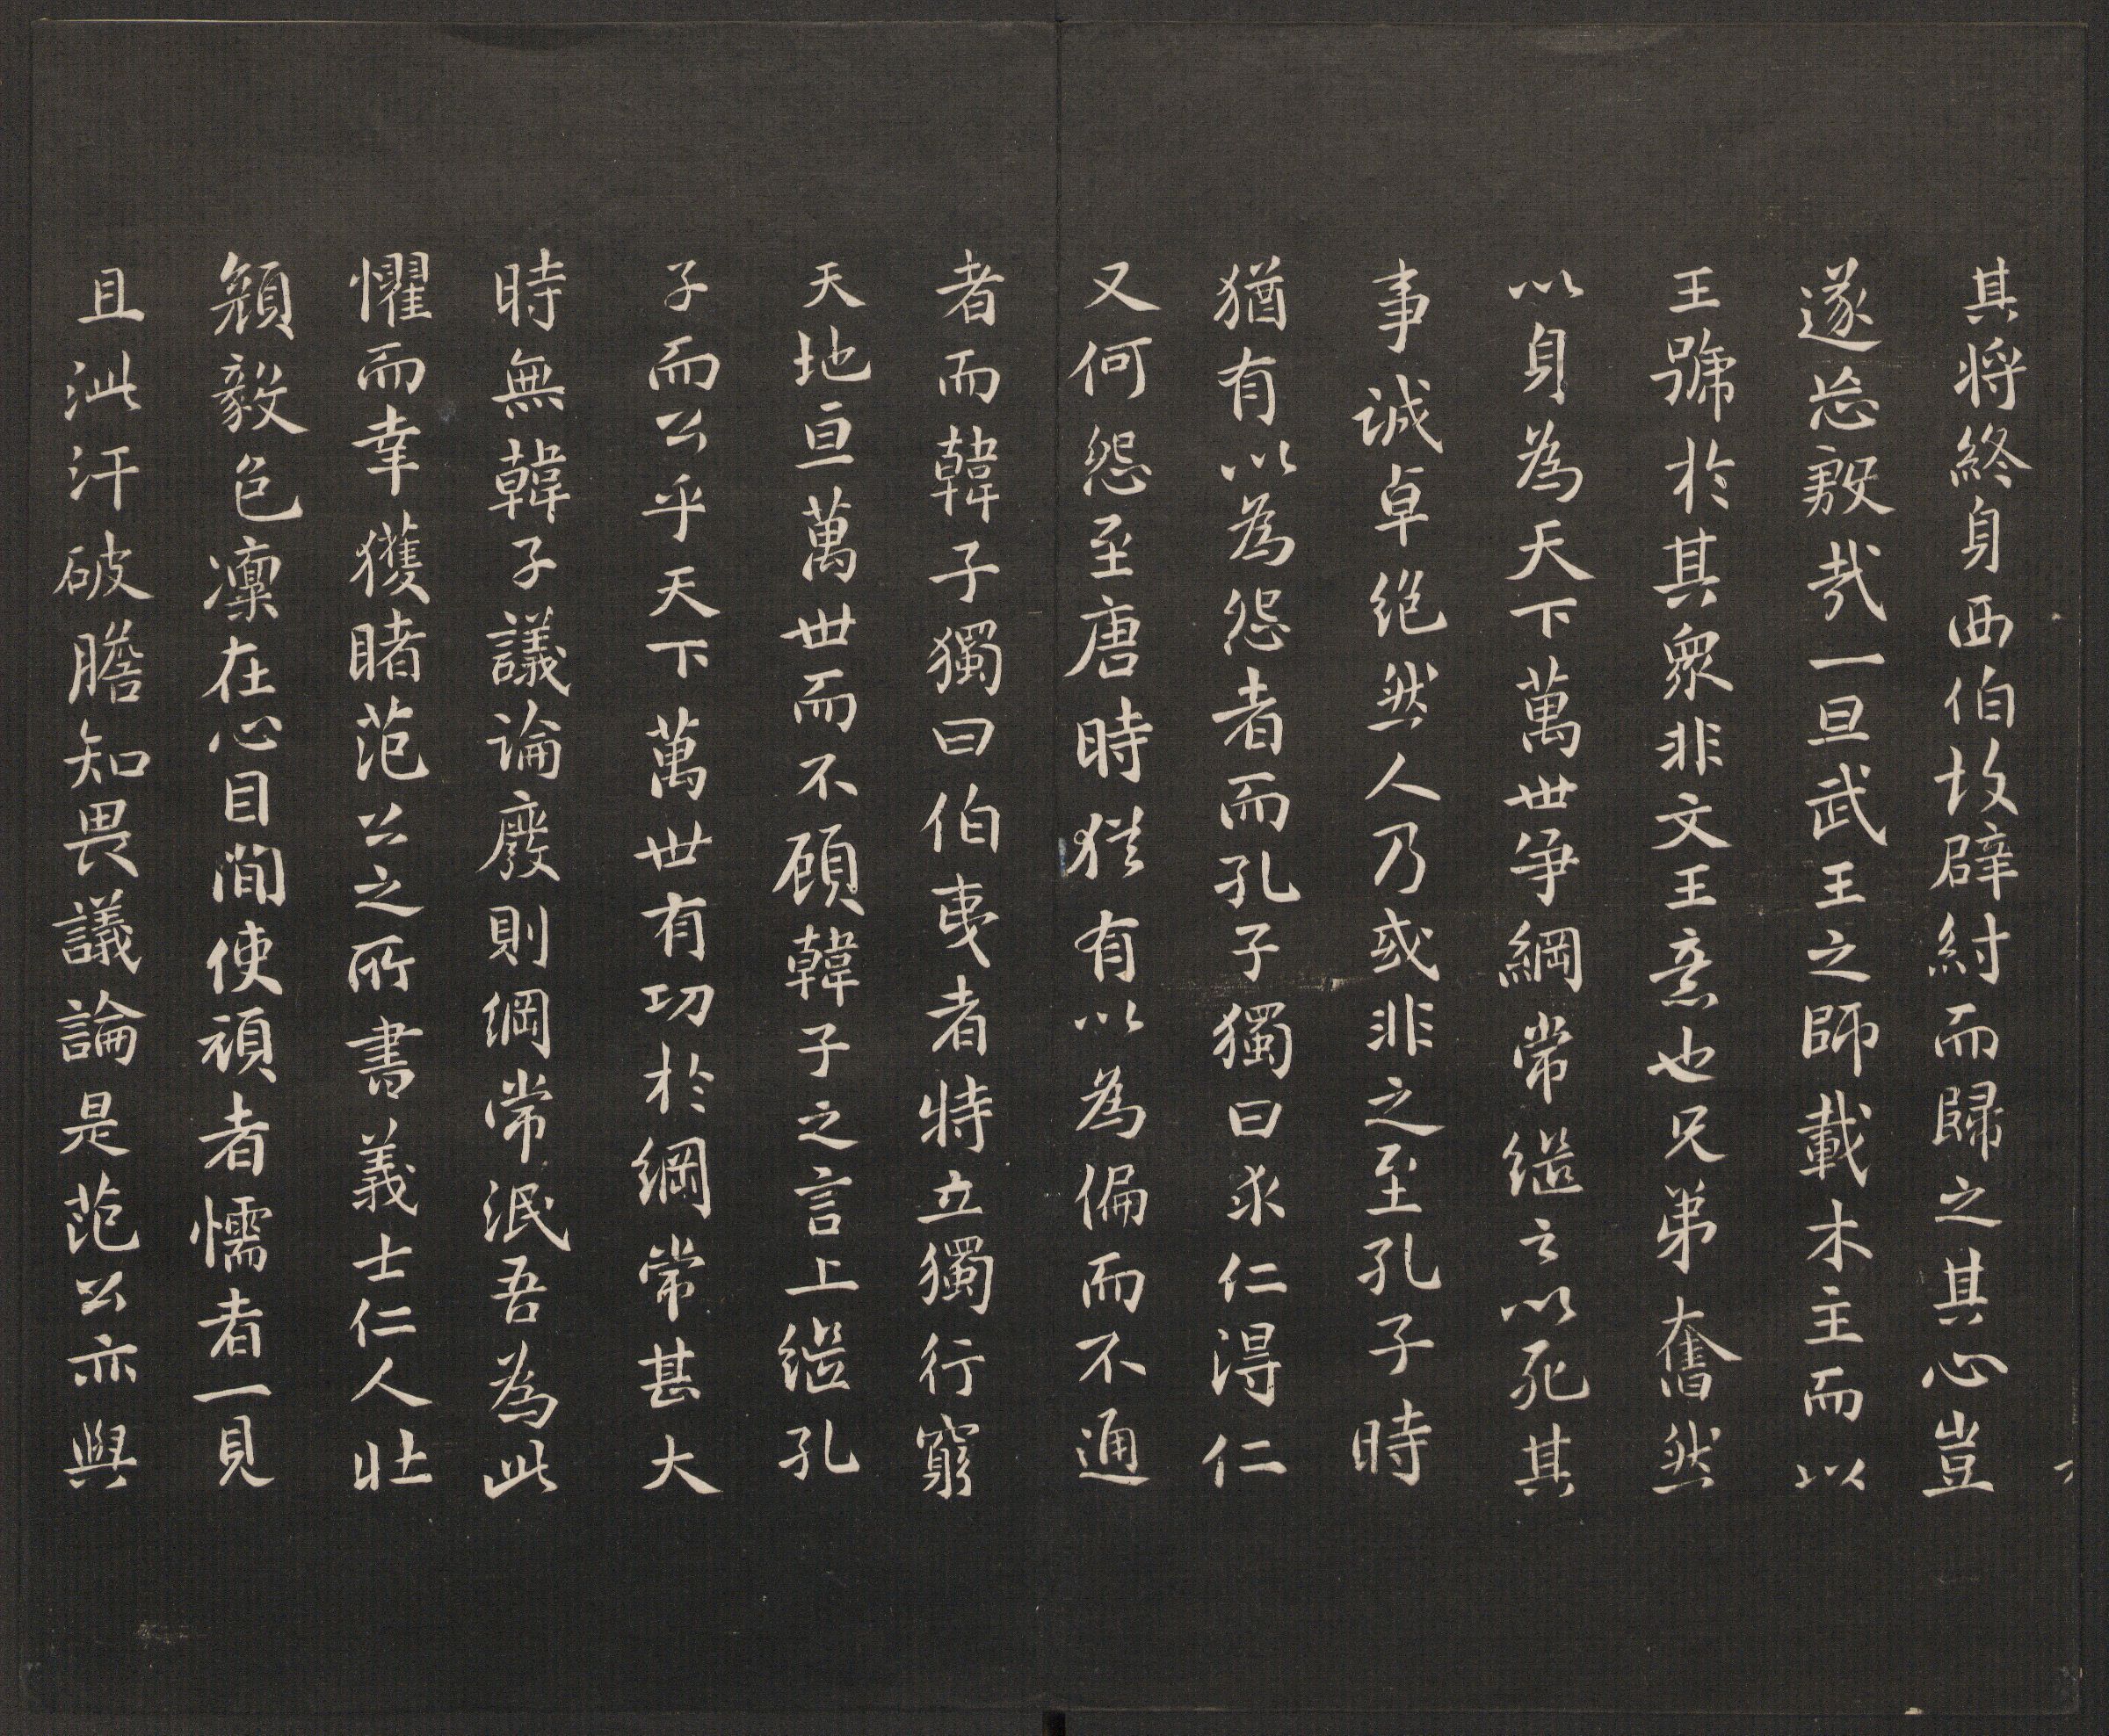 其將終身西伯故辟紂而歸之其心豈
遂忘殷哉一旦武王之師載木主而以
王號於其衆非文王意也兄弟奮然
以身為天下萬世爭綱常繼之以死其
事誠卓絶然人乃或非之至孔子時
猶有以為怨者而孔子獨曰求仁得仁
又何怨至唐時猶有以為偏而不通
者而韓子獨曰伯夷者特立獨行窮
天地亘萬世而不顧韓子之言上繼孔
子而公乎天下萬世有功於綱常甚大
時無韓子議論廢則綱常泯吾為此
懼而幸獲睹范公之所書義士仁人壯
顏毅色凜在心目間使頑者懦者一見
且泚汗破膽知畏議論是范公亦與